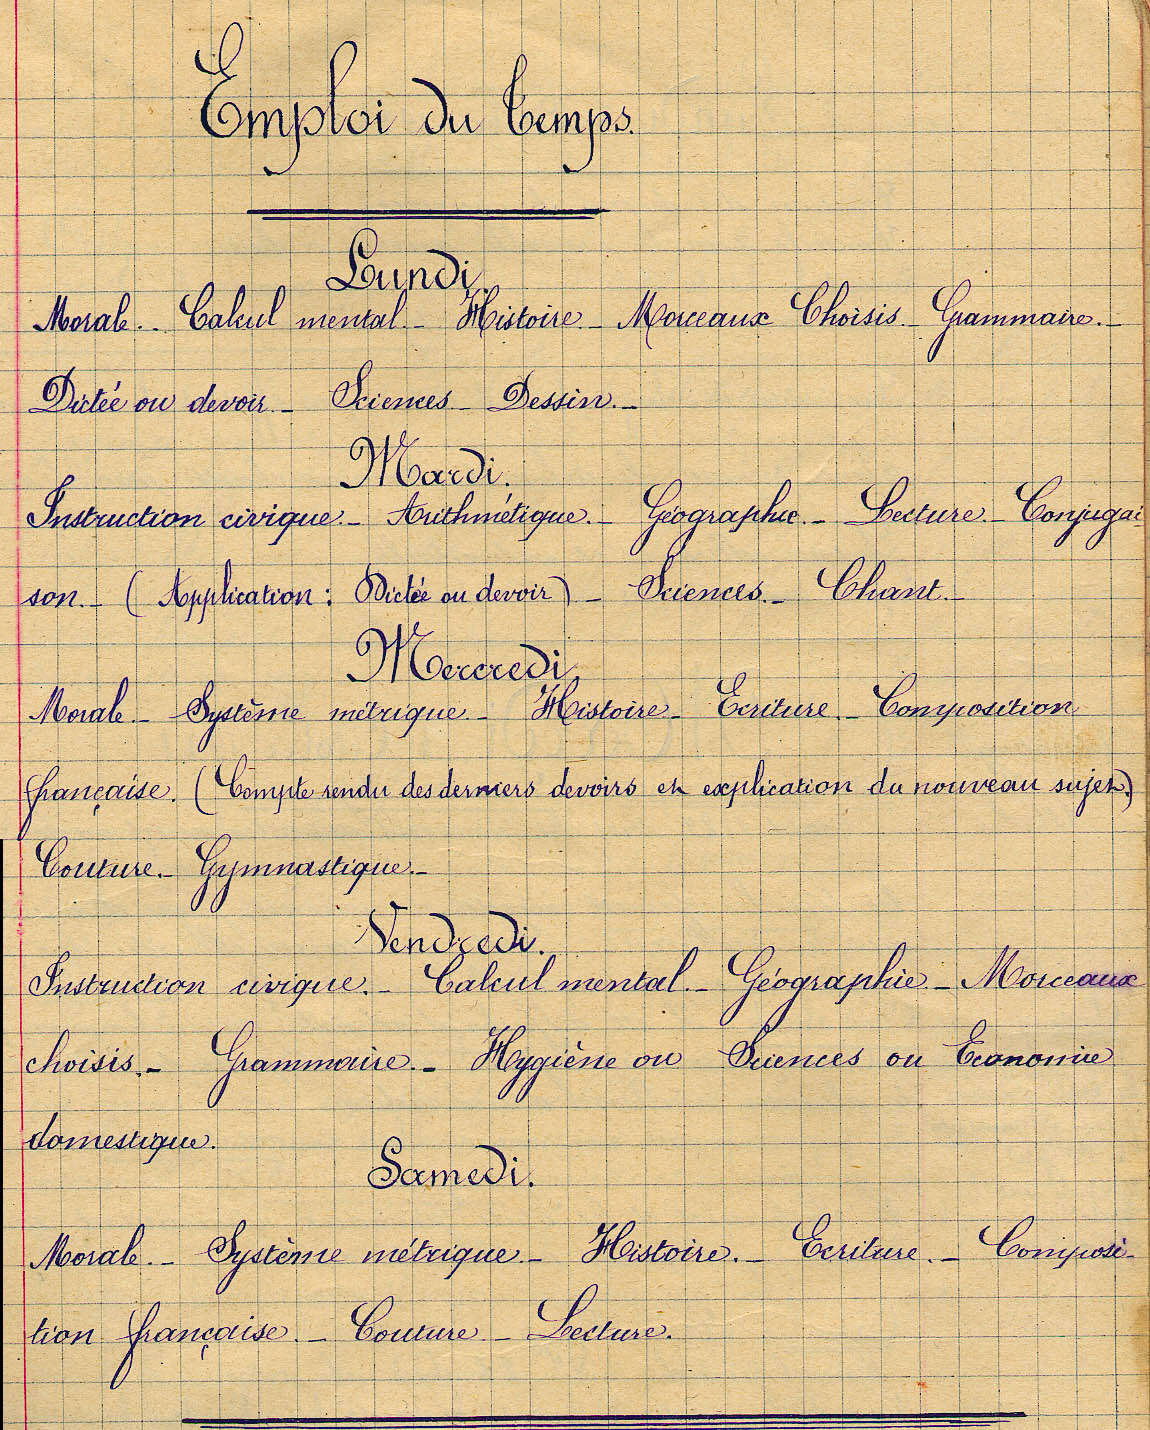 Emploi du Temps.
Lundi.
Morale. _ Calcul mental. _ Histoire _ Morceaux Choisis. _ Grammaire. _
Dictée ou devoir. _ Sciences _ Dessin. _
Mardi.
Instruction civique. _ Arithmétique. _ Géographie. _ Lecture. _ Conjugai
son. _ (Application : Dictée ou devoir) _ Sciences. _ Chant. _
Mercredi.
Morale. _ Système métrique. _ Histoire. _ Ecriture. _ Composition
française. (Compte rendu des derniers devoirs et explication du nouveau sujet.)
Couture. _ Gymnastique. _
Vendredi.
Instruction civique. _ Calcul mental. _ Géographie. _ Morceaux
choisis. _ Grammaire. _ Hygiène ou Sciences ou Economie
domestique.
Samedi.
Morale. _ Système métrique. _ Histoire. _ Ecriture. _ Composi-
tion française. _ Couture _ Lecture.